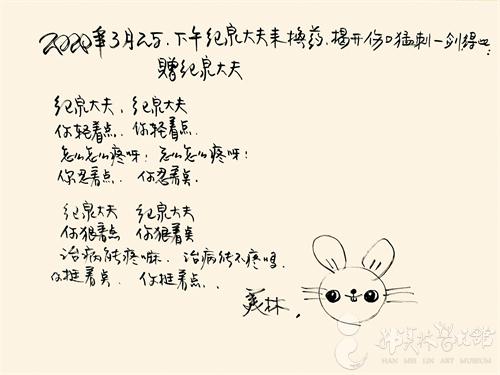 2020年3月25,下午纪泉大夫来换药,揭开伤口猛刺一剑得此:
赠纪泉大夫
纪泉大夫,纪泉大夫
你轻着点,你轻着点.
怎么怎么疼呀!怎么怎么疼呀!
你忍着点,你忍着点.
纪泉大夫 纪泉大夫
你狠着点 你狠着点
治病能疼嘛,治病能不疼吗,
你挺着点,你挺着点..
美林.
韩美林艺术馆
HAN MEI LIN ART MUSEUM